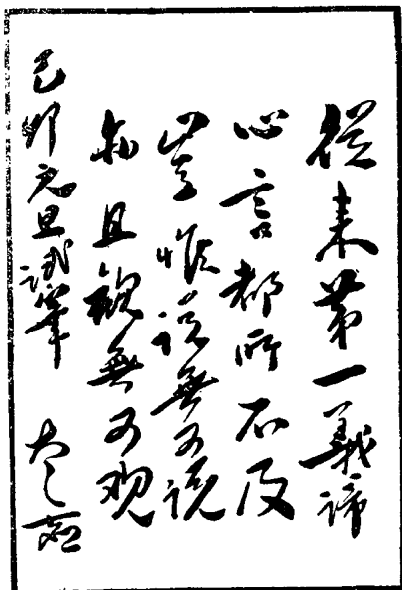 從来第一義諦
心言都所不及
豈惟說無可說
亦且觀無可观
己卯元旦試筆 太虛